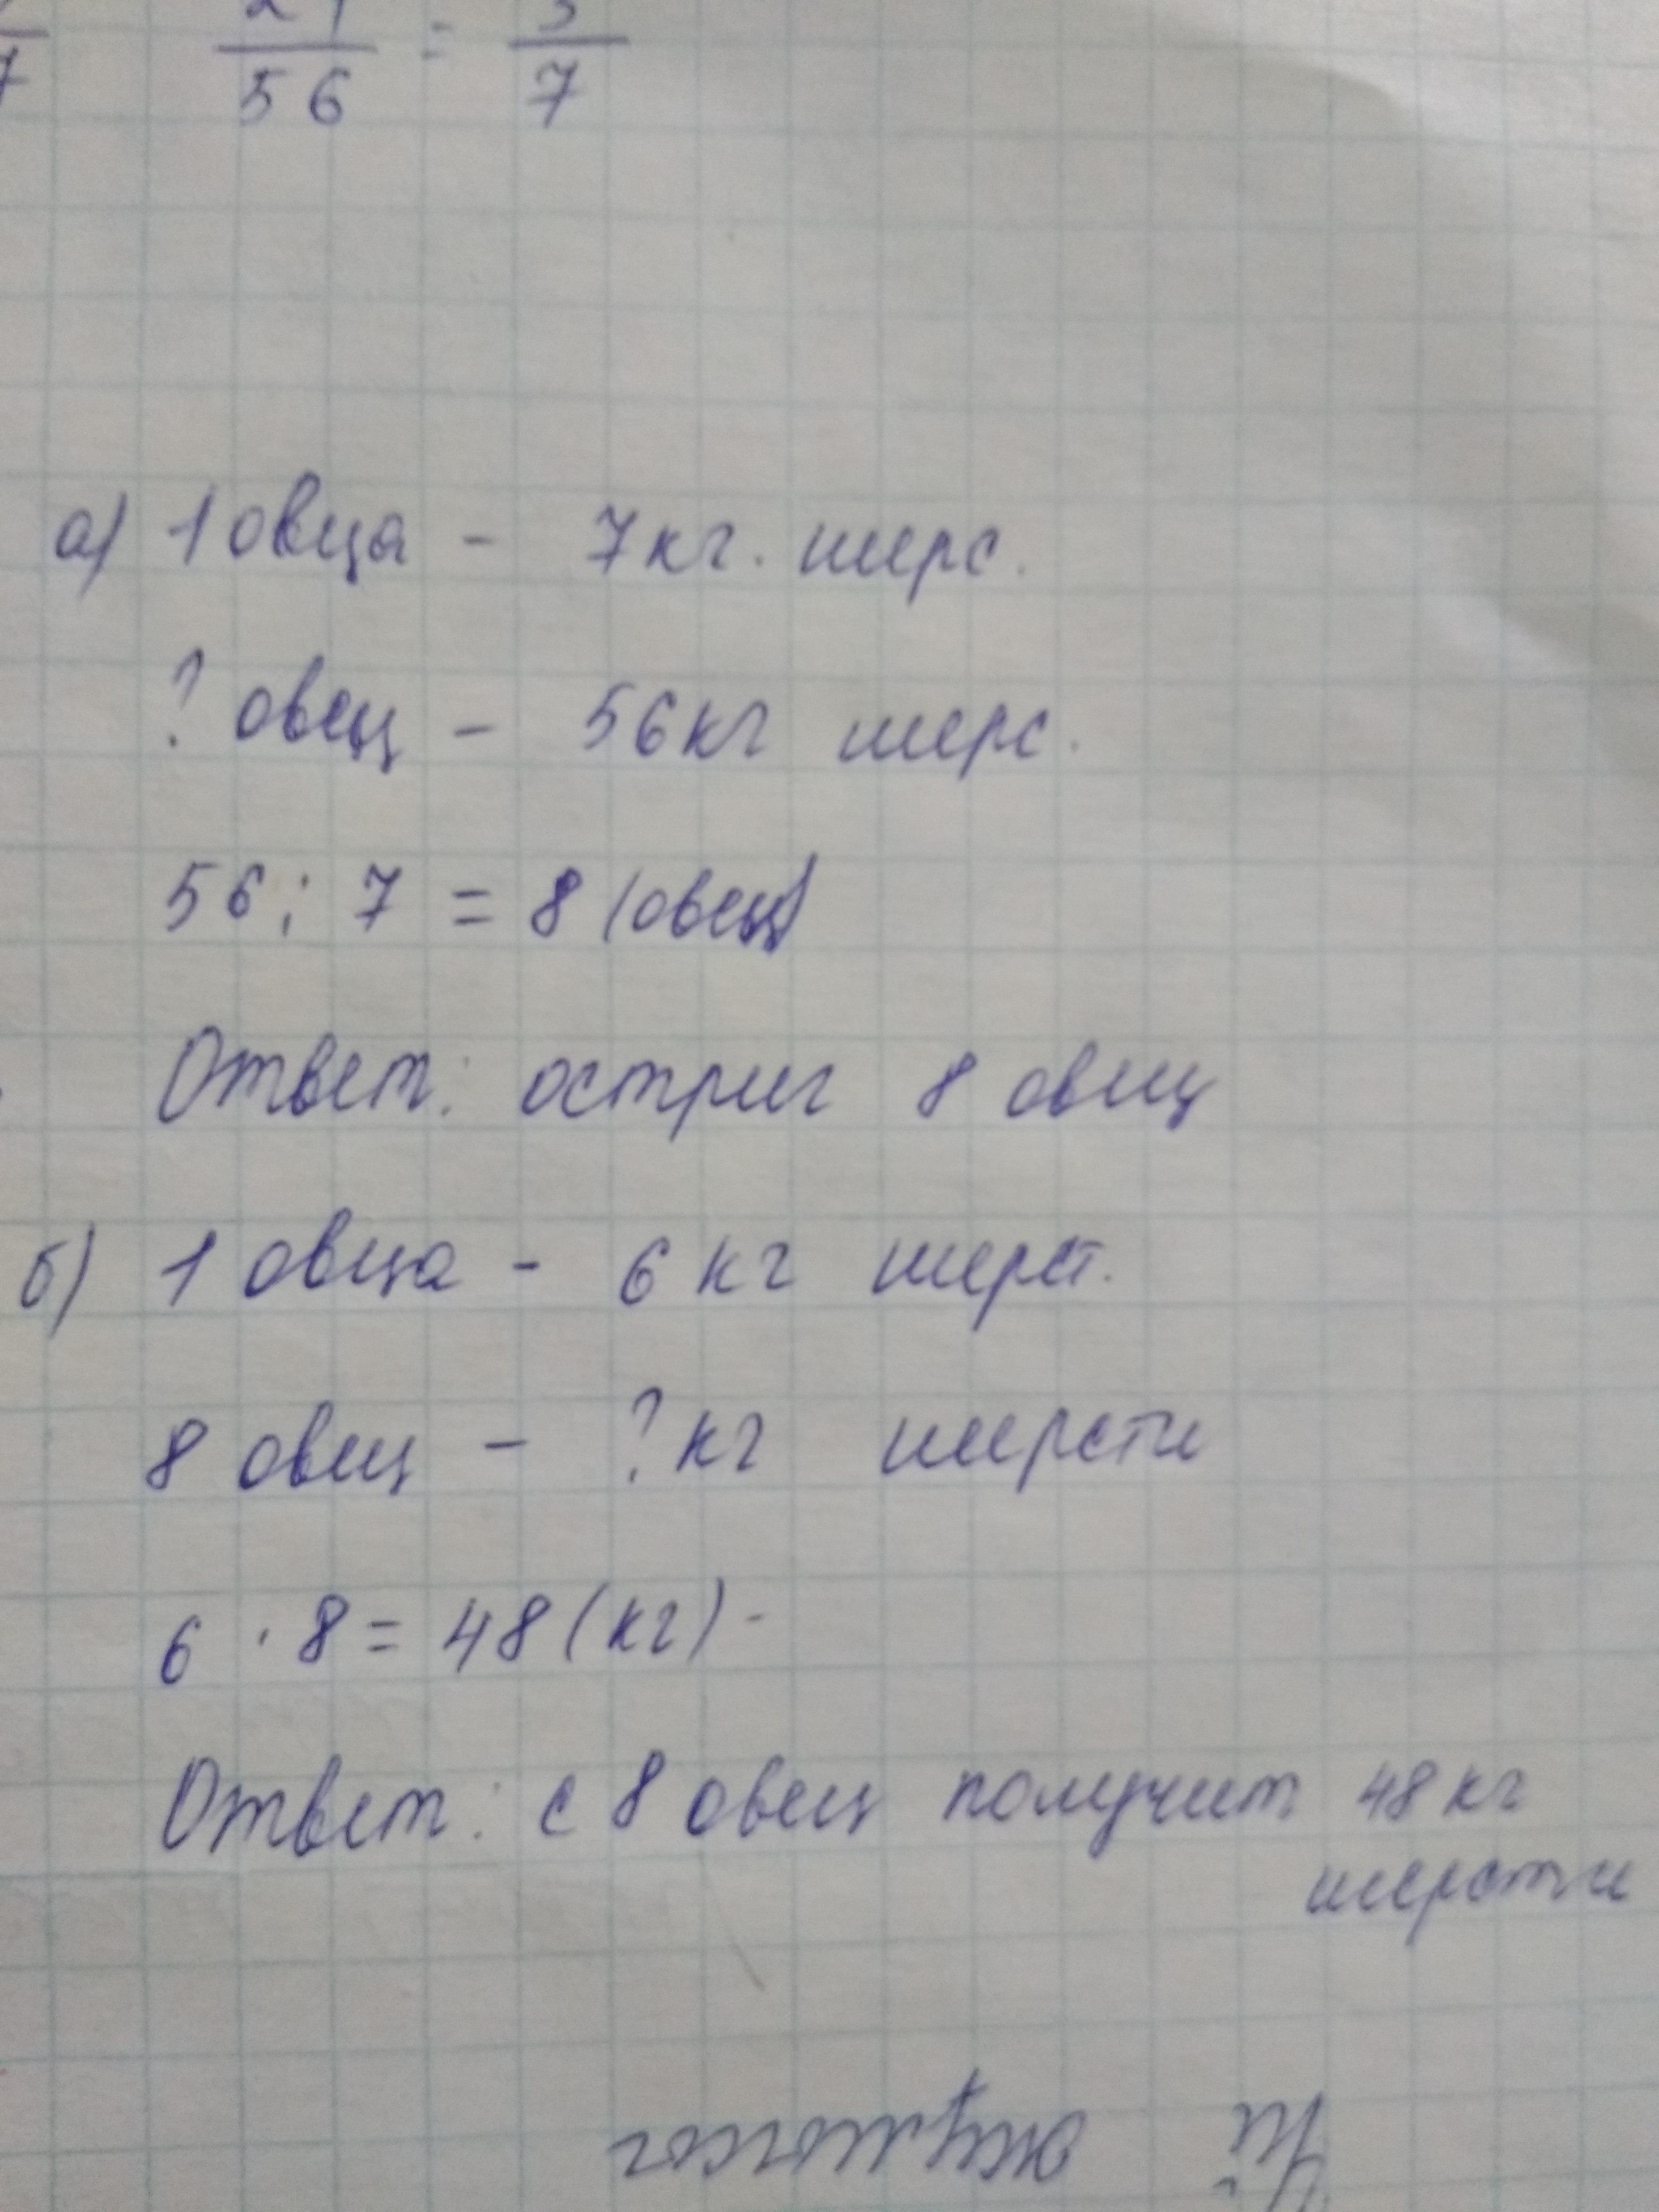 7 56 = 7
а) 1 овца - 7 кг. шерс.
? овец - 56 кг шерс.
56 : 7 = 8 (овец)
Ответ: остриг 8 овец
б) 1 овца - 6 кг шерст.
8 овец - ? кг шерсти
6 · 8 = 48 (кг) -
Ответ: с 8 овец получит 48 кг
шерсти